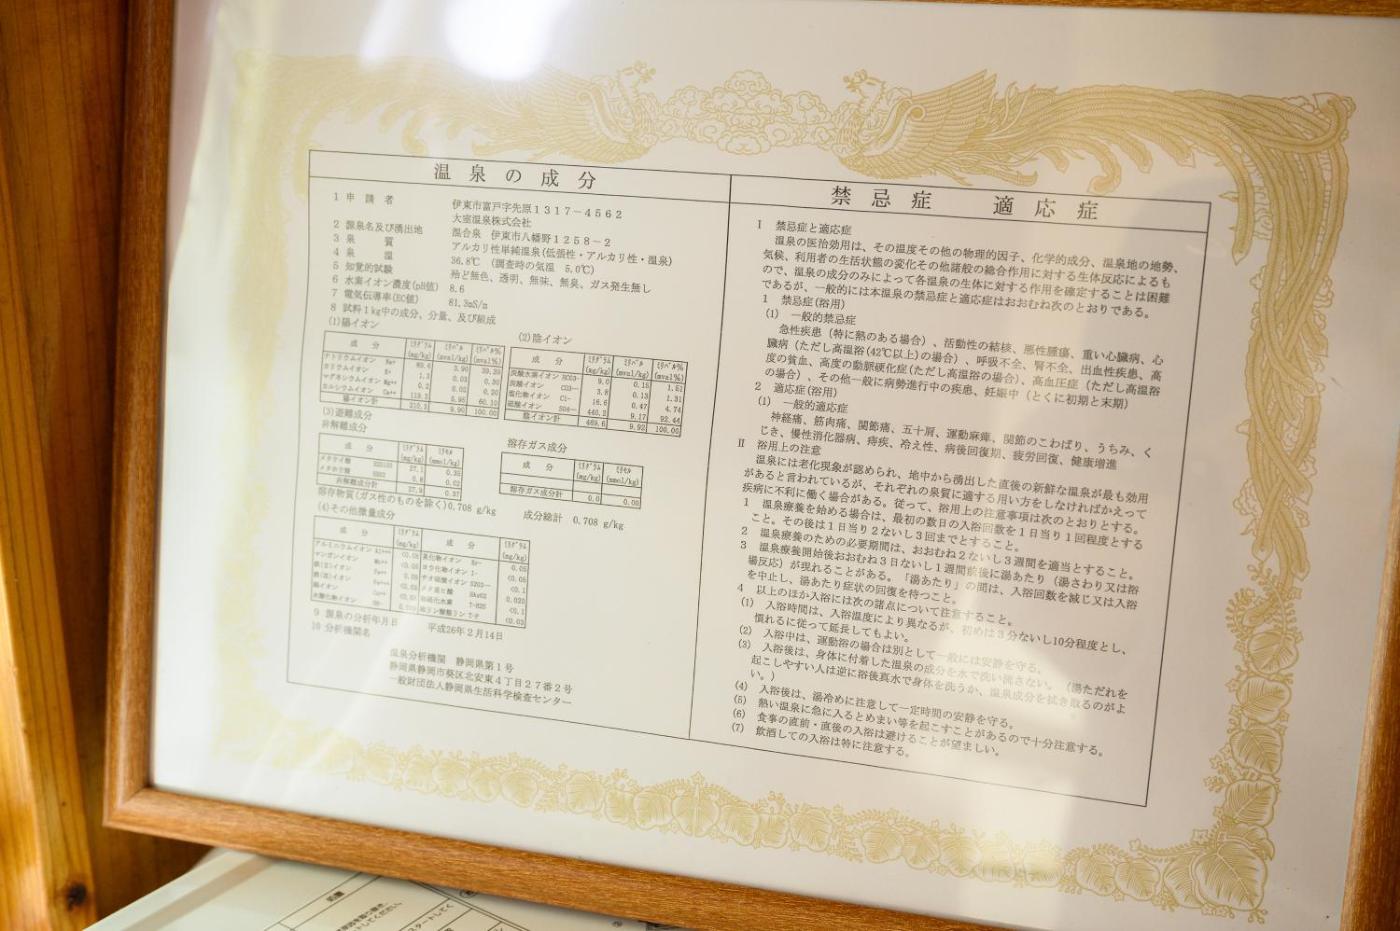 温泉の成分
1 申請者 伊東市富戸字先原1317-4562
大室温泉株式会社
2 源泉名及び湧出地 混合泉 伊東市八幡野1258-2
3 泉質 アルカリ性単純温泉(低張性・アルカリ性・温泉)
4 泉温 36.8℃ (調査時の気温 5.0℃)
5 知覚的試験 殆ど無色、透明、無味、無臭、ガス発生無し
6 水素イオン濃度(pH値) 8.6
7 電気伝導率(EC値) 81.3mS/m
8 試料1kg中の成分、分量、及び組成
(1)陽イオン
成分 ミリグラム(mg/kg) ミリバル(mval/kg) ミリバル%(mval%)
ナトリウムイオン Na+ 89.6 3.90 39.39
カリウムイオン K+ 1.3 0.03 0.30
マグネシウムイオン Mg++ 0.2 0.02 0.20
カルシウムイオン Ca++ 119.2 5.95 60.10
陽イオン計 210.3 9.90 100.00
(2)陰イオン
成分 ミリグラム(mg/kg) ミリバル(mval/kg) ミリバル%(mval%)
炭酸水素イオン HCO3- 9.0 0.15 1.51
炭酸イオン CO3-- 3.8 0.13 1.31
塩化物イオン Cl- 16.6 0.47 4.74
硫酸イオン SO4-- 440.2 9.17 92.44
陰イオン計 469.6 9.92 100.00
(3)遊離成分
非解離成分
成分 ミリグラム(mg/kg) ミリモル(mmol/kg)
メタケイ酸 H2SiO3 27.1 0.35
メタホウ酸 HBO2 0.8 0.02
非解離成分計 27.9 0.37
溶存ガス成分
成分 ミリグラム(mg/kg) ミリモル(mmol/kg)
溶存ガス成分計 0.0 0.00
溶存物質(ガス性のものを除く)0.708 g/kg 成分総計 0.708 g/kg
(4)その他微量成分
成分 ミリグラム(mg/kg) 成分 ミリグラム(mg/kg)
アルミニウムイオン Al+++ <0.05 臭化物イオン Br- 0.05
マンガンイオン Mn++ ヨウ化物イオン I- <0.05
鉄(II)イオン Fe++ チオ硫酸イオン S2O3-- <0.1
鉄(III)イオン Fe+++ メタ亜ヒ酸 HAsO2 0.020
銅イオン Cu++ 総硫化水素 T-H2S <0.1
水酸化物イオン OH- 総リン酸態リン T-P <0.03
9 源泉の分析年月日 平成26年2月14日
10 分析機関名
温泉分析機関 静岡県第1号
静岡県静岡市葵区北安東4丁目27番2号
一般財団法人静岡県生活科学検査センター
禁忌症 適応症
Ⅰ 禁忌症と適応症
温泉の医治効用は、その温度その他の物理的因子、化学的成分、温泉地の地勢、
気候、利用者の生活状態の変化その他諸般の総合作用に対する生体反応によるも
ので、温泉の成分のみによって各温泉の生体に対する作用を確定することは困難
であるが、一般的には本温泉の禁忌症と適応症はおおむね次のとおりである。
1 禁忌症(浴用)
(1) 一般的禁忌症
急性疾患(特に熱のある場合)、活動性の結核、悪性腫瘍、重い心臓病、心
臓病(ただし高温浴(42℃以上)の場合)、呼吸不全、腎不全、出血性疾患、高
度の貧血、高度の動脈硬化症(ただし高温浴の場合)、高血圧症(ただし高温浴
の場合)、その他一般に病勢進行中の疾患、妊娠中(とくに初期と末期)
2 適応症(浴用)
(1) 一般的適応症
神経痛、筋肉痛、関節痛、五十肩、運動麻痺、関節のこわばり、うちみ、く
じき、慢性消化器病、痔疾、冷え性、病後回復期、疲労回復、健康増進
Ⅱ 浴用上の注意
温泉には老化現象が認められ、地中から湧出した直後の新鮮な温泉が最も効用
があると言われているが、それぞれの泉質に適する用い方をしなければかえって
疾病に不利に働く場合がある。従って、浴用上の注意事項は次のとおりとする。
1 温泉療養を始める場合は、最初の数日の入浴回数を1日当り1回程度とする
こと。その後は1日当り2ないし3回までとすること。
2 温泉療養のための必要期間は、おおむね2ないし3週間を適当とすること。
3 温泉療養開始後おおむね3日ないし1週間前後に湯あたり(湯さわり又は浴
場反応)が現れることがある。「湯あたり」の間は、入浴回数を減じ又は入浴
を中止し、湯あたり症状の回復を待つこと。
4 以上のほか入浴には次の諸点について注意すること。
(1) 入浴時間は、入浴温度により異なるが、初めは3分ないし10分程度とし、
慣れるに従って延長してもよい。
(2) 入浴中は、運動浴の場合は別として一般には安静を守る。
(3) 入浴後は、身体に付着した温泉の成分を水で洗い流さない。(湯ただれを
起こしやすい人は逆に浴後真水で身体を洗うか、温泉成分を拭き取るのがよ
い。)
(4) 入浴後は、湯冷めに注意して一定時間の安静を守る。
(5) 熱い温泉に急に入るとめまい等を起こすことがあるので十分注意する。
(6) 食事の直前・直後の入浴は避けることが望ましい。
(7) 飲酒しての入浴は特に注意する。